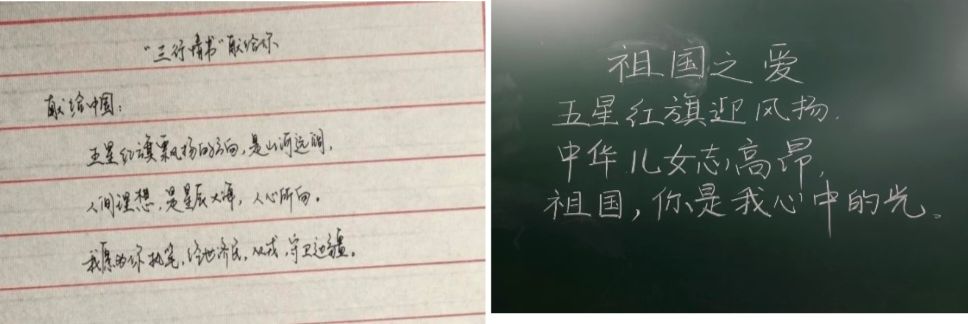 “三行情书”献给你
献给中国:
五星红旗飘扬的方向,是山河远阔,
人间理想,是星辰大海,人心所向。
我愿为你执笔,经世济民,从戎,守卫边疆。
祖国之爱
五星红旗迎风扬,
中华儿女志高昂,
祖国,你是我心中的光。